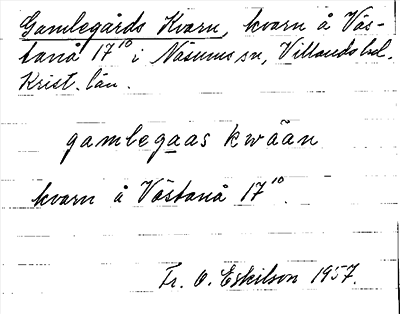 Gamlegårds Kvarn, kvarn å Väs-
tanå 17¹⁰ i Näsums sn, Villands hd.
Krist. län.
gamlegaas kwãan
kvarn å Västanå 17¹⁰.
Fr. O. Eskilson 1957.